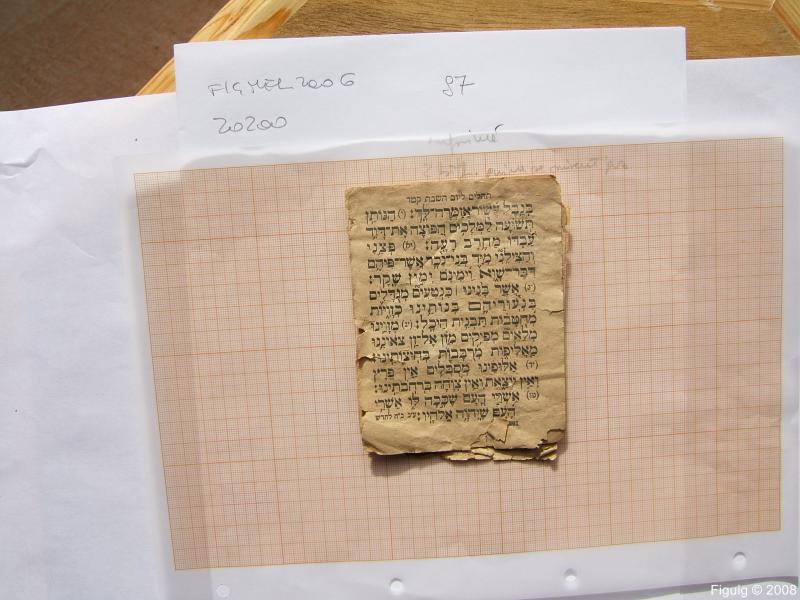 FIGMEL2006 97
20200
imprimé
תהלים ליום השבת קמד
בְּנֵבֶל עָשׂוֹר אֲזַמְּרָה־לָּךְ: (י) הַנּוֹתֵן
תְּשׁוּעָה לַמְּלָכִים הַפּוֹצֶה אֶת־דָּוִד
עַבְדּוֹ מֵחֶרֶב רָעָה: (יא) פְּצֵנִי
וְהַצִּילֵנִי מִיַּד בְּנֵי־נֵכָר אֲשֶׁר־פִּיהֶם
דִּבֶּר־שָׁוְא וִימִינָם יְמִין שָׁקֶר:
(יב) אֲשֶׁר בָּנֵינוּ | כִּנְטִעִים מְגֻדָּלִים
בִּנְעוּרֵיהֶם בְּנוֹתֵינוּ כְזָוִיּוֹת
מְחֻטָּבוֹת תַּבְנִית הֵיכָל: (יג) מְזָוֵינוּ
מְלֵאִים מְפִיקִים מִזַּן אֶל־זַן צֹאונֵנוּ
מַאֲלִיפוֹת מְרֻבָּבוֹת בְּחוּצוֹתֵינוּ:
(יד) אַלּוּפֵינוּ מְסֻבָּלִים אֵין פֶּרֶץ
וְאֵין יוֹצֵאת וְאֵין צְוָחָה בִּרְחֹבֹתֵינוּ:
(טו) אַשְׁרֵי הָעָם שֶׁכָּכָה לּוֹ אַשְׁרֵי
הָעָם שֶׁיְהֹוָה אֱלֹהָיו: ע״כ כ״ח לחדש
Figulg © 2008